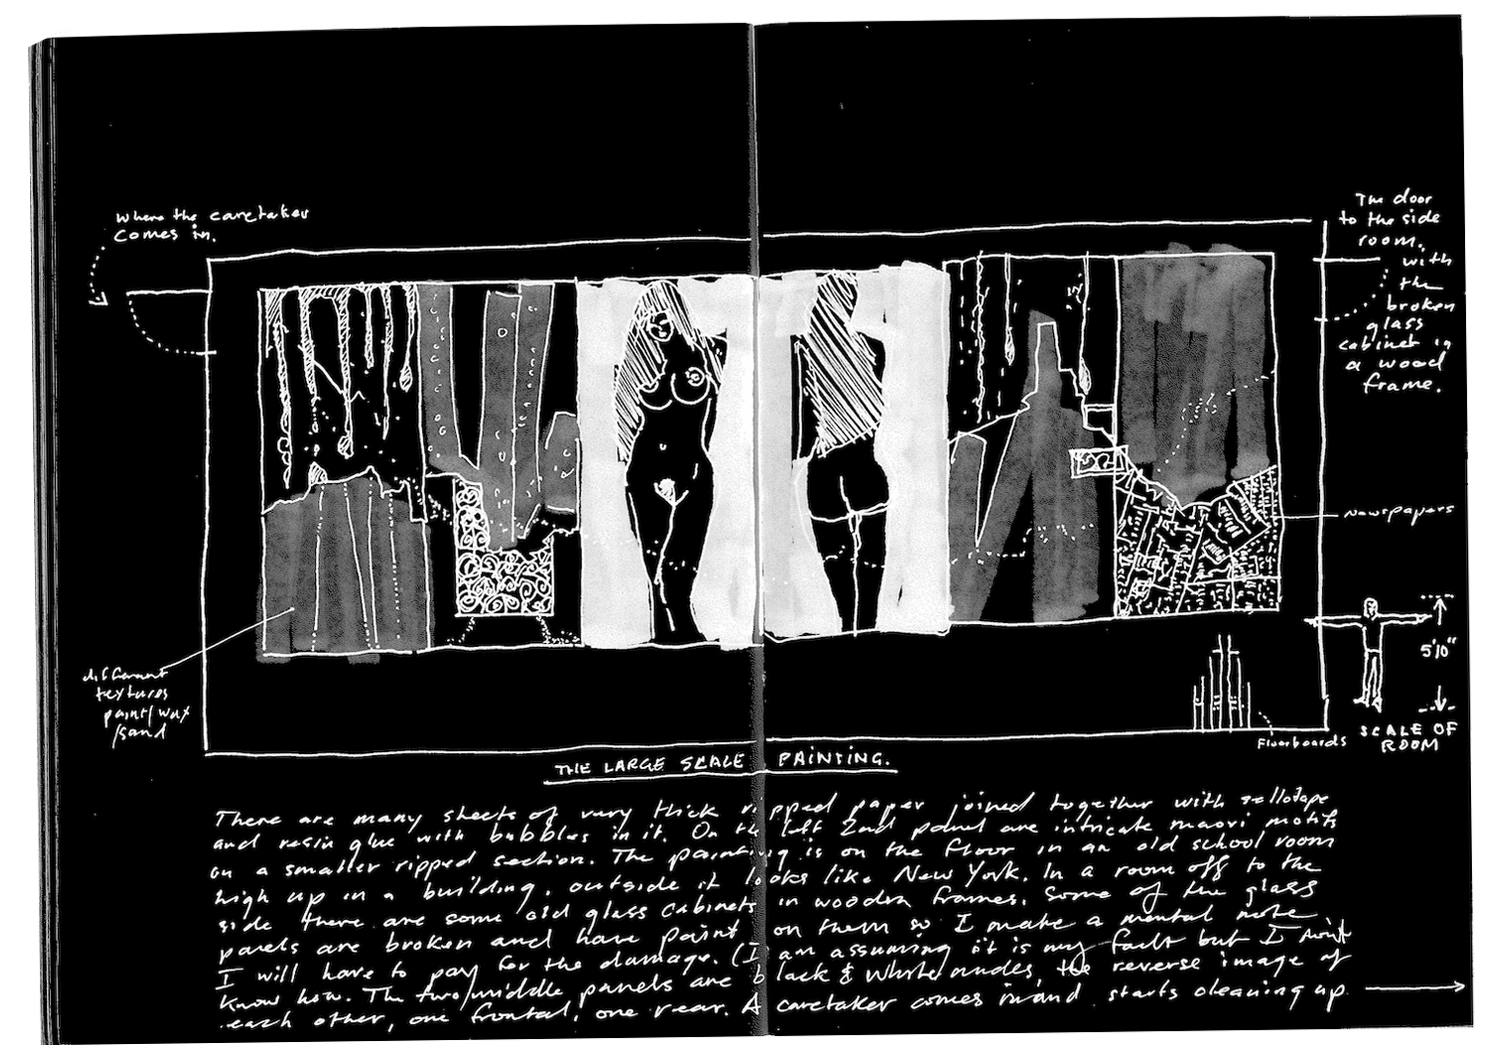 Where the caretaker
comes in.
The door
to the side
room.
with
the
broken
glass
cabinet in
a wood
frame.
Newspapers
different
textures
paint/wax
/sand
5'10"
SCALE OF
ROOM
Floorboards
THE LARGE SCALE PAINTING.
There are many sheets of very thick ripped paper joined together with sellotape
and resin glue with bubbles in it. On the left 2nd panel are intricate maori motifs
on a smaller ripped section. The painting is on the floor in an old school room
high up in a building, outside it looks like New York. In a room off to the
side there are some old glass cabinets in wooden frames. Some of the glass
panels are broken and have paint on them so I make a mental note
I will have to pay for the damage. (I am assuming it is my fault but I don't
know how. The two middle panels are black & white nudes, the reverse image of
each other, one frontal, one rear. A caretaker comes in and starts cleaning up.